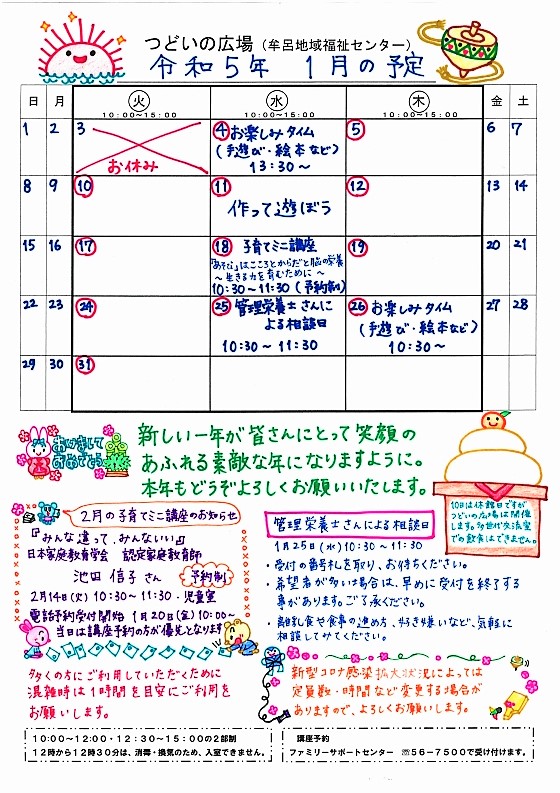 つどいの広場（牟呂地域福祉センター）
令和5年 1月の予定
日 月 火 水 木 金 土
10:00～15:00 10:00～15:00 10:00～15:00
1 2 3 4 お楽しみタイム 5 6 7
お休み
(手遊び・絵本など)
13:30～
8 9 10 11 12 13 14
作って遊ぼう
15 16 17 18 子育てミニ講座 19 20 21
『あそび』はこころとからだと脳の栄養
～生きる力を育むために～
10:30～11:30（予約制）
22 23 24 25 管理栄養士さんに 26 お楽しみタイム 27 28
よる相談日
(手遊び・絵本など)
10:30～11:30
10:30～
29 30 31
あけまして
おめでとう
新しい一年が皆さんにとって笑顔の
あふれる素敵な年になりますように。
本年もどうぞよろしくお願いいたします。
10日は休館日ですが
つどいの広場は開催
します。多世代交流室
での飲食はできません。
2月の子育てミニ講座のお知らせ
『みんな違って、みんないい』
日本家庭教育学会 認定家庭教育師
池田 信子さん 予約制
2月14日(火)10:30～11:30・児童室
電話予約受付開始 1月20日(金)10:00～
当日は講座予約の方が優先となります
管理栄養士さんによる相談日
1月25日(水)10:30～11:30
・受付の番号札を取り、お待ちください。
・希望者が多い場合は、早めに受付を終了する
事があります。ご了承ください。
・離乳食や食事の進め方、好き嫌いなど、気軽に
相談してみてください。
多くの方にご利用していただくために
混雑時は1時間を目安にご利用を
お願いします。
新型コロナ感染拡大状況によっては
定員数・時間など変更する場合が
ありますので、よろしくお願いします。
10:00～12:00・12:30～15:00の2部制
12時から12時30分は、消毒・換気のため、入室できません。
講座予約
ファミリーサポートセンター ☏56-7500で受け付けます。